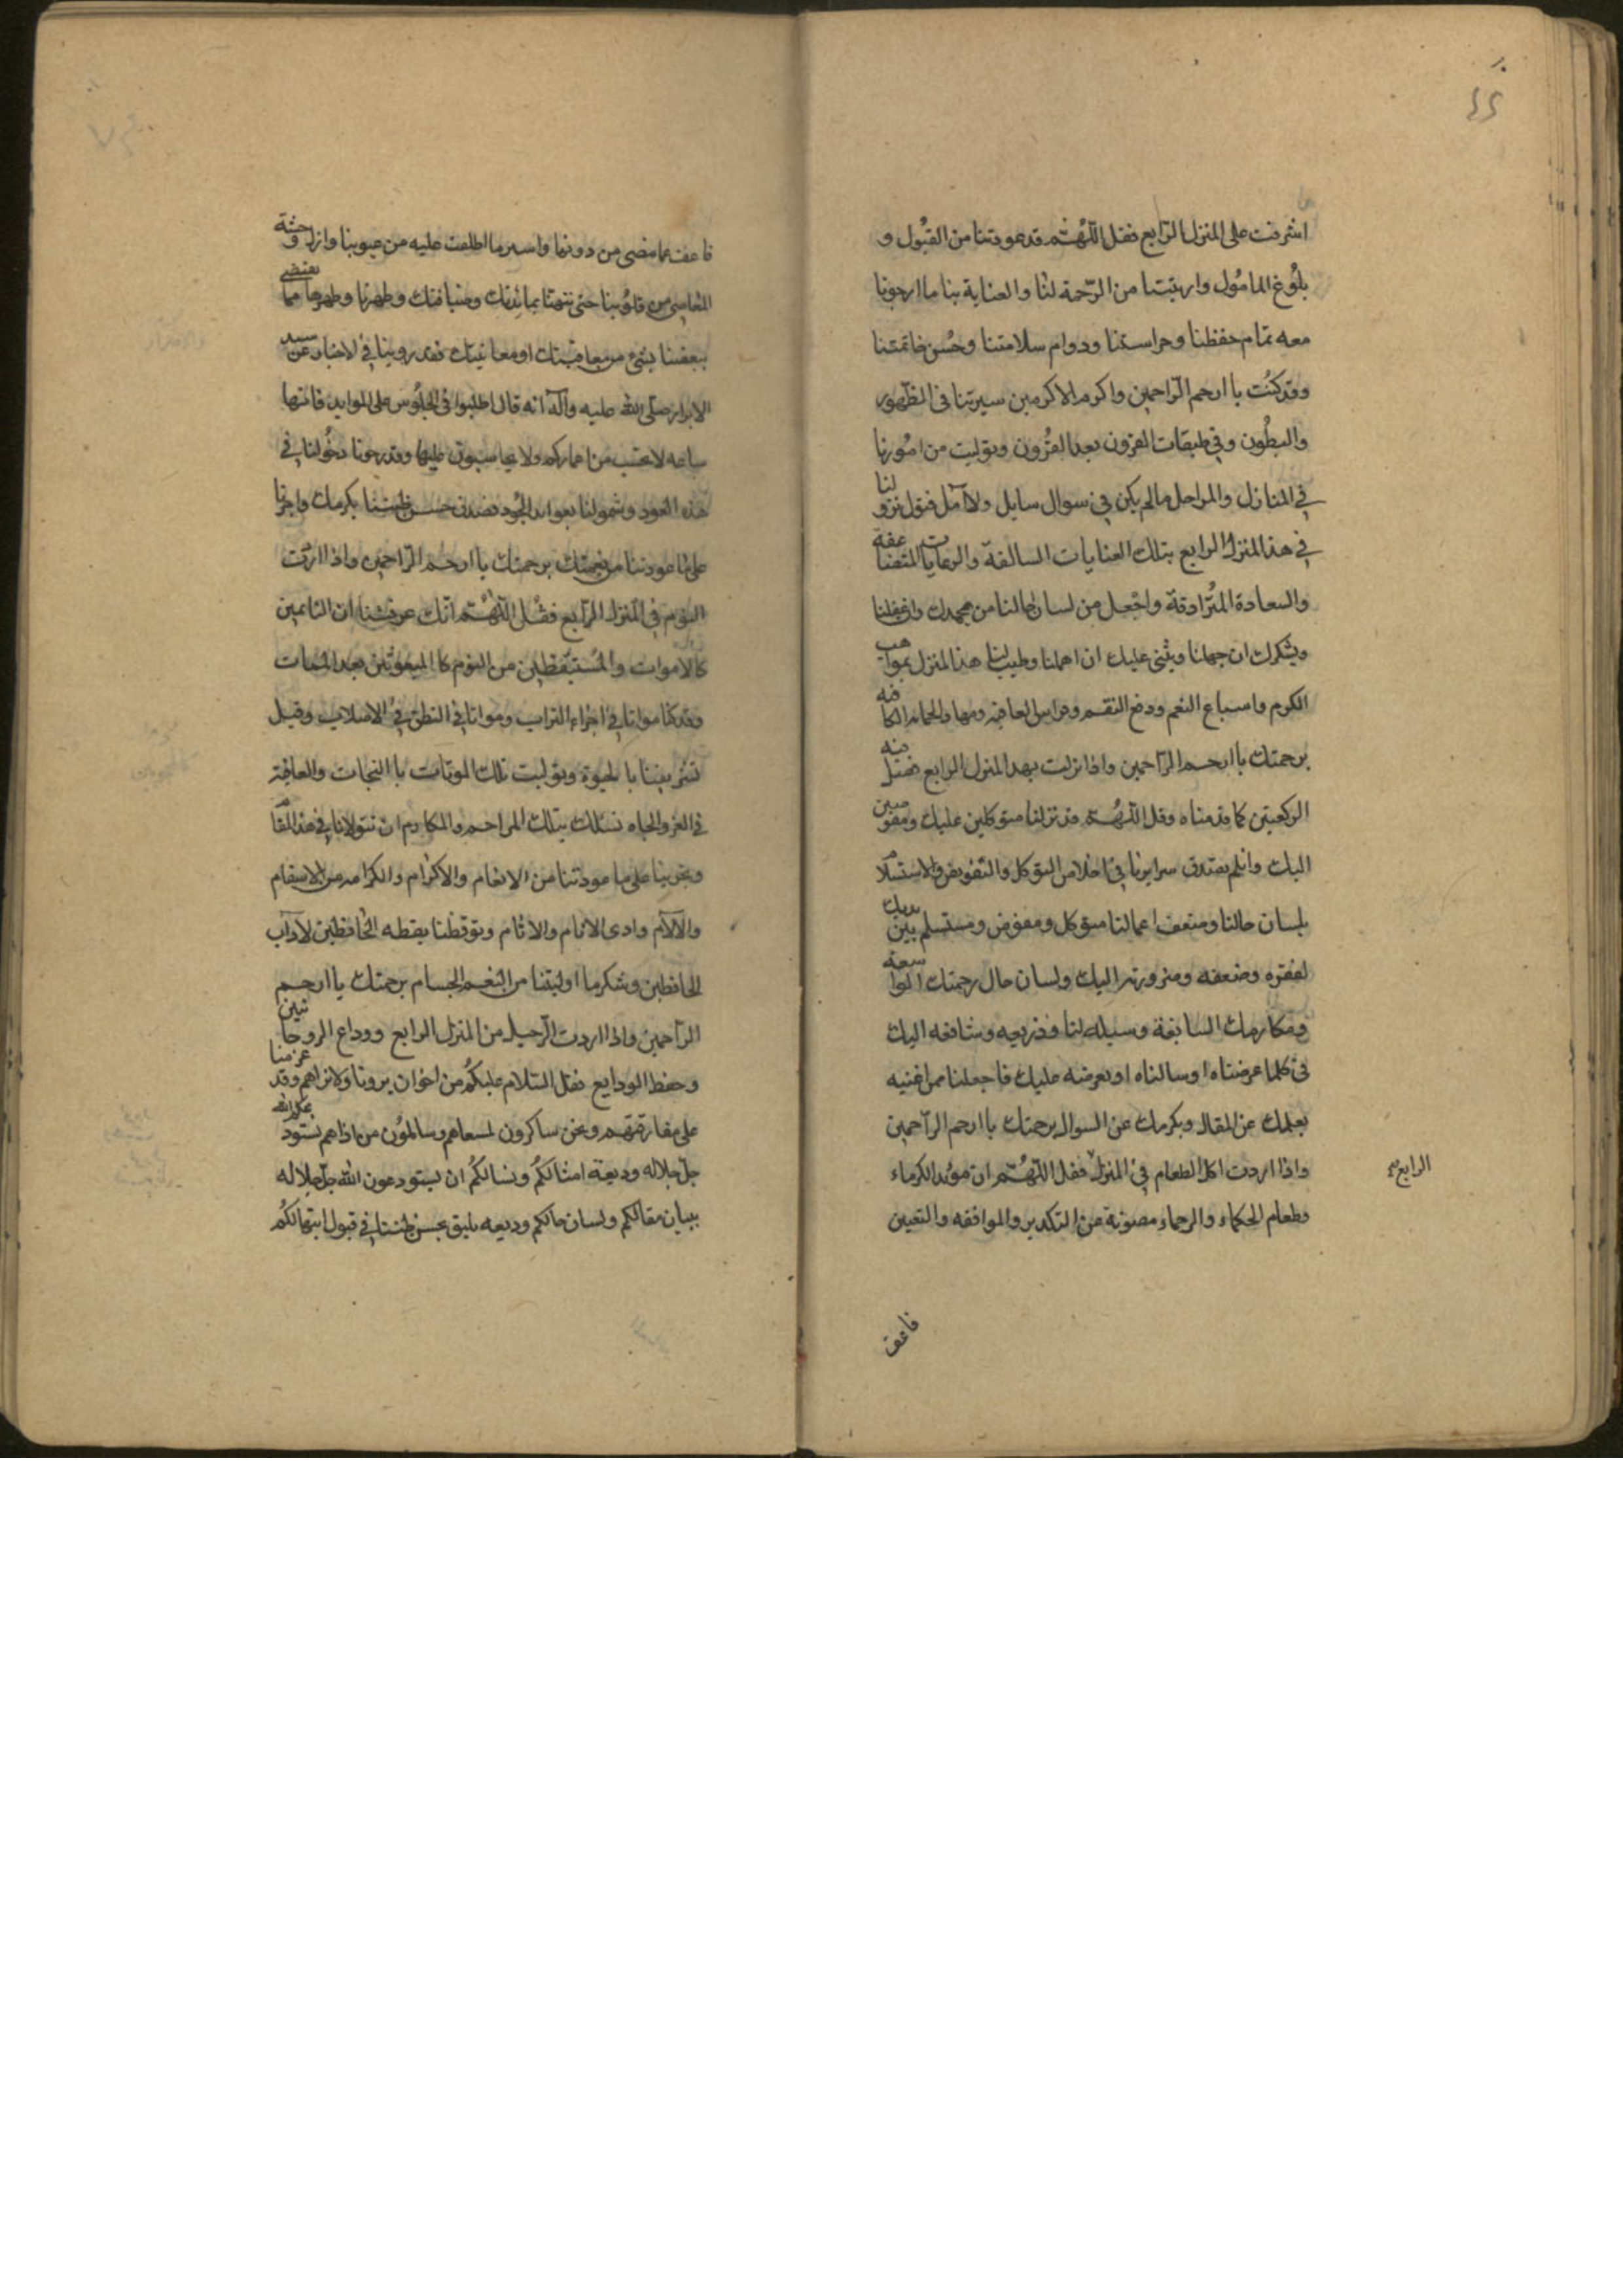 ٤٤
اشرفت على المنزل الرّابع فقل اللّهُمّ قد عودتنا من القبُول و
بلُوغ المامُول واريتنا من الرّحمة لنا والعناية بنا ما ارجونا
معه تمام حفظنا وحراستنا ودوام سلامتنا وحُسن خاتمتنا
وقد كنُت يا ارحم الرّاحمين واكرم الاكرمين سيرتنا فى الظّهور
والبطُون وفى طبقات القرون بعد القرُون وتوليت من امُورنا
في المنازل والمراحل مالم يكن في سوال سايل ولا آمل فتول نزولنا
في هذ المنزل الرابع بتلك العنايات السالفة والرعايات المتضاعفة
والسعادة المتُرادفة واجْعل من لسان حالنا من يحمدك ان غفلنا
ويشكرك ان جهلنا ويثنى عليك ان اهملنا وطيب لنا هذ المنزل بمواهب
الكرم واسباغ النعم ودفع النقم وحراس العافيه ومهاد الحمايه الكافه
برحمتك يا ارحم الرّاحمين واذا نزلت بهد المنزل الرابع فصل فيه
الركعتين كما قدمناه وقل اللّهُمّ قد نزلنا متوكلين عليك ومفوضين
اليك وان لم يصدق سرايرنا في اخلاص التوكل والتفويض والاستسلام
بلسان حالنا وضعف اعمالنا متوكل ومفوض ومستسلم بين يديك
لفقره وضعفه وضرورته اليك ولسان حال رحمتك الواسعه
ومكارمك السابغة وسيلة لنا وذريعه وشافعه اليك
فى كلما عرضناه او سالناه او نعرضه عليك فاجعلنا ممن اغنيه
بعلمك عن المقال وبكرمك عن السوال برحمتك يا ارحم الرّاحمين
واذا اردت اكل الطعام في المنزل فقل اللّهُمّ ان موايد الكرماء
الرابع صح
وطعام الحكماء والرحماء مصونة عن التكدير والموافقه والتعيين
فاعف
فاعف عما مضى من دونها واستر ما اطلعت عليه من عيوبنا وازل وحشة
المعاصى من قلوُبنا حتى نتهنّا بمائدتك وضيافتك وطهرنا وطهرها مما يقتضى
تبغضنا بشئ من معاقبتك او معاتبتك فقد روينا في الاخبار عن سيد
الابرار صلّى الله عليه وآله انه قال اطلبوا فى الجلُوس على الموايد فانها
ساعه لا تحتسب من اعماركم ولا تحاسبون عليها وقد رجونا دخُولنا في
هذه العود وشمولنا بعوايد الجُود فصدق حسن ظننا بكرمك واجرنا
على ما عودتنا من نعمتك برحمتك يا ارحم الرّاحمين واذا اردت
النوم في المنزل الرّابع فقُل اللّهُمّ انّك عرفتنا ان النائمين
كالاموات والمُستيقظين من النوم كا المبعوثين بعد الممات
وقد كنا مواتا في اجزاء التراب ومواتا في النطق في الاصلاب وقبل
تشريفنا با لحيوة وتوليت تلك الموتات با النجات والعافية
في العز والجاه نسئلك بتلك المراحم والمكارم ان تتولانا في هذ المقام
وتجرينا على ما عودتنا من الانعام والاكرام والكرامه من الاسقام
والآلام واذى الانام والاثام وتوقظنا يقظه الحافظين لآداب
الحافظين وشكر ما اوليتنا من النعم الجسام برحمتك يا ارحم
الرّاحمين واذا اردت الرّحيل من المنزل الرابع ووداع الروحانيين
وحفظ الودايع فقل السّلام عليكُم من اخوان يرونا ولا نراهم وقد عزمنا
على مفارقتهم ونحن شاكرون لمسعاهم وسالمُون من اذاهم نستودعكم الله
جلّ جلاله وديعة امثالكُم ونسالكُم ان تستودعون الله جلّ جلاله
ببيان مقالكم ولسان حالكم وديعه تليق بحسن ظننا في قبول ابتهالكُم